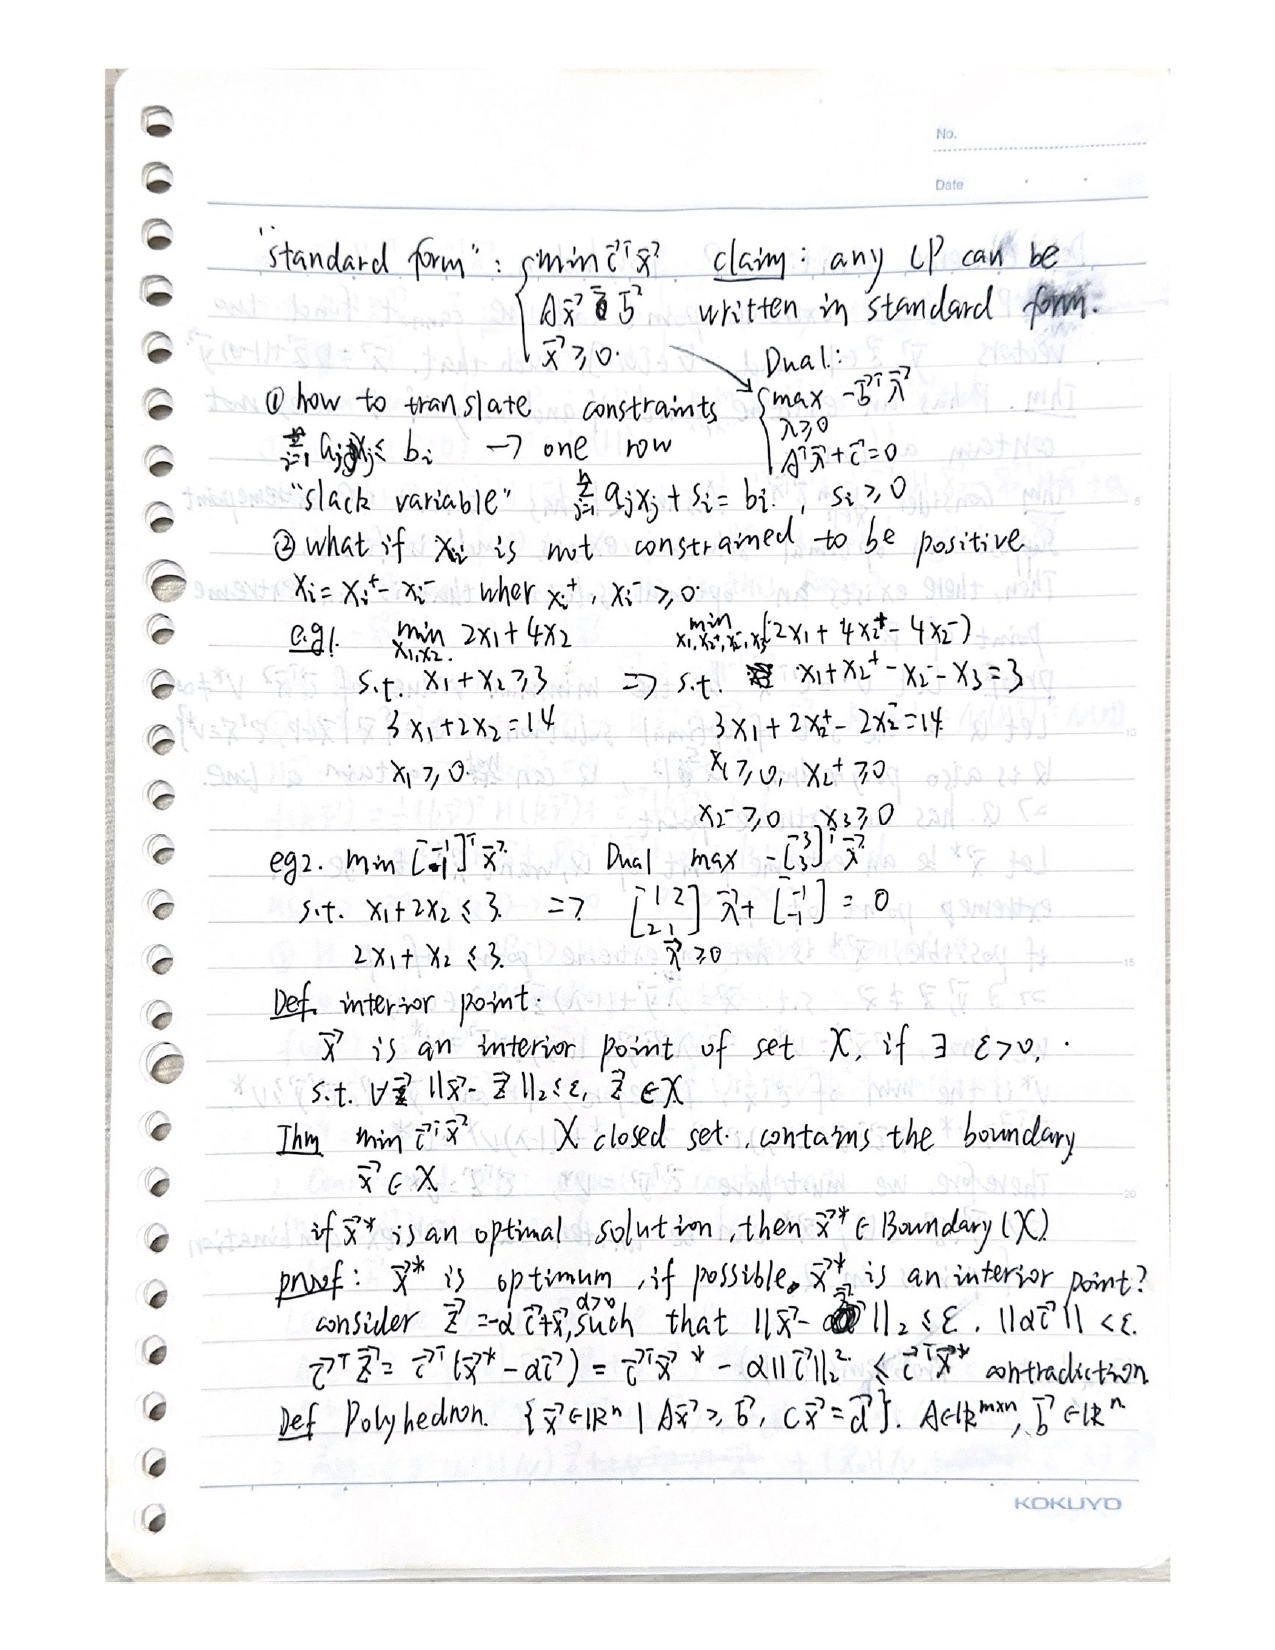 No.
Date
"standard form" : { min c⃗ᵀx⃗ claim : any LP can be
Ax⃗ = b⃗ written in standard form.
x⃗ ≥ 0. Dual:
① how to translate constraints { max -b⃗ᵀλ⃗
λ ≥ 0
Σ aⱼxⱼ ≤ bᵢ → one row Aᵀλ⃗ + c⃗ = 0
"slack variable" Σⁿⱼ₌₁ aⱼxⱼ + sᵢ = bᵢ , sᵢ ≥ 0
② what if xᵢ is not constrained to be positive
xᵢ = xᵢ⁺ - xᵢ⁻ wher xᵢ⁺, xᵢ⁻ ≥ 0
e.g1. min x₁,x₂. 2x₁ + 4x₂ min x₁,x₂⁺,x₂⁻,x₃ (2x₁ + 4x₂⁺ - 4x₂⁻)
s.t. x₁ + x₂ ≥ 3 => s.t. x₁ + x₂⁺ - x₂⁻ - x₃ = 3
3x₁ + 2x₂ = 14 3x₁ + 2x₂⁺ - 2x₂⁻ = 14
x₁ ≥ 0. x₁ ≥ 0, x₂⁺ ≥ 0
x₂⁻ ≥ 0 x₃ ≥ 0
eg2. min [-1 -1]ᵀ x⃗ Dual max -[3 3]ᵀ λ⃗
s.t. x₁ + 2x₂ ≤ 3. => [1 2 2 1] λ⃗ + [-1 -1] = 0
2x₁ + x₂ ≤ 3. λ⃗ ≥ 0
Def. interior point.
x⃗ is an interior point of set X, if ∃ ε > 0, .
s.t. ∀ z⃗ ||x⃗ - z⃗||₂ ≤ ε, z⃗ ∈ X
Thm min c⃗ᵀx⃗ X closed set. , contains the boundary
x⃗ ∈ X
if x⃗* is an optimal solution, then x⃗* ∈ Boundary (X)
proof : x⃗* is optimum , if possible, x⃗* is an interior point?
consider z⃗ = -αc⃗ + x⃗, α>0 such that ||x⃗ - z⃗||₂ ≤ ε. ||αc⃗|| < ε.
c⃗ᵀz⃗ = c⃗ᵀ(x⃗* - αc⃗) = c⃗ᵀx⃗* - α||c⃗||₂² ≤ c⃗ᵀx⃗* contradiction
Def Polyhedron. {x⃗ ∈ ℝⁿ | Ax⃗ ≥ b⃗, Cx⃗ = d⃗}. A ∈ ℝᵐˣⁿ, b⃗ ∈ ℝⁿ
KOKUYO